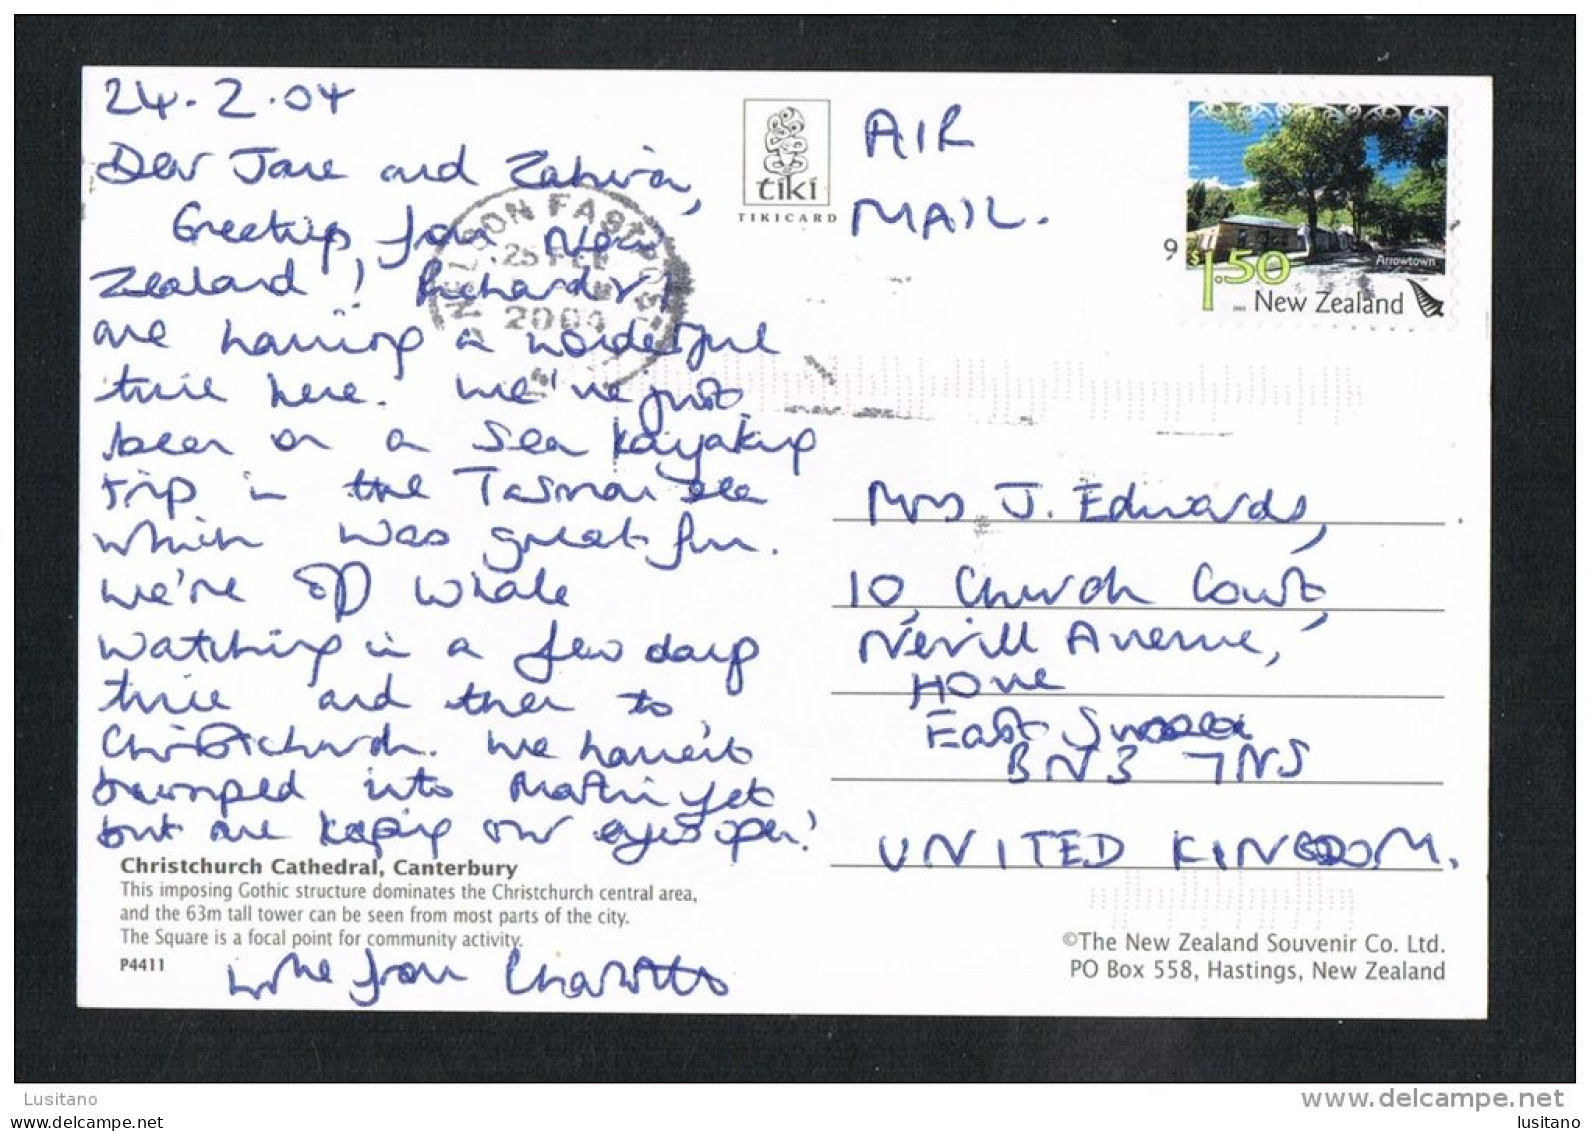 24.2.04
Dear Jane and Zahira,
Greetings from New
Zealand! Richard & I
are having a wonderful
time here. We've just
been on a sea kayaking
trip in the Tasman sea
which was great fun.
We're off whale
watching in a few days
time and then to
Christchurch. We haven't
bumped into Martin yet
but are keeping our eyes open!
Christchurch Cathedral, Canterbury
This imposing Gothic structure dominates the Christchurch central area,
and the 63m tall tower can be seen from most parts of the city.
The Square is a focal point for community activity.
P4411
love from Charlotte
tiki
TIKICARD
NELSON FASTPOST
25 FEB
2004
AIR
MAIL.
9
Arrowtown
$1.50
New Zealand
Mrs J. Edwards,
10, Church Court,
Nevill Avenue,
Hove
East Sussex
BN3 7NS
UNITED KINGDOM.
©The New Zealand Souvenir Co. Ltd.
PO Box 558, Hastings, New Zealand
Lusitano
www.delcampe.net
lusitano.com
lusitano